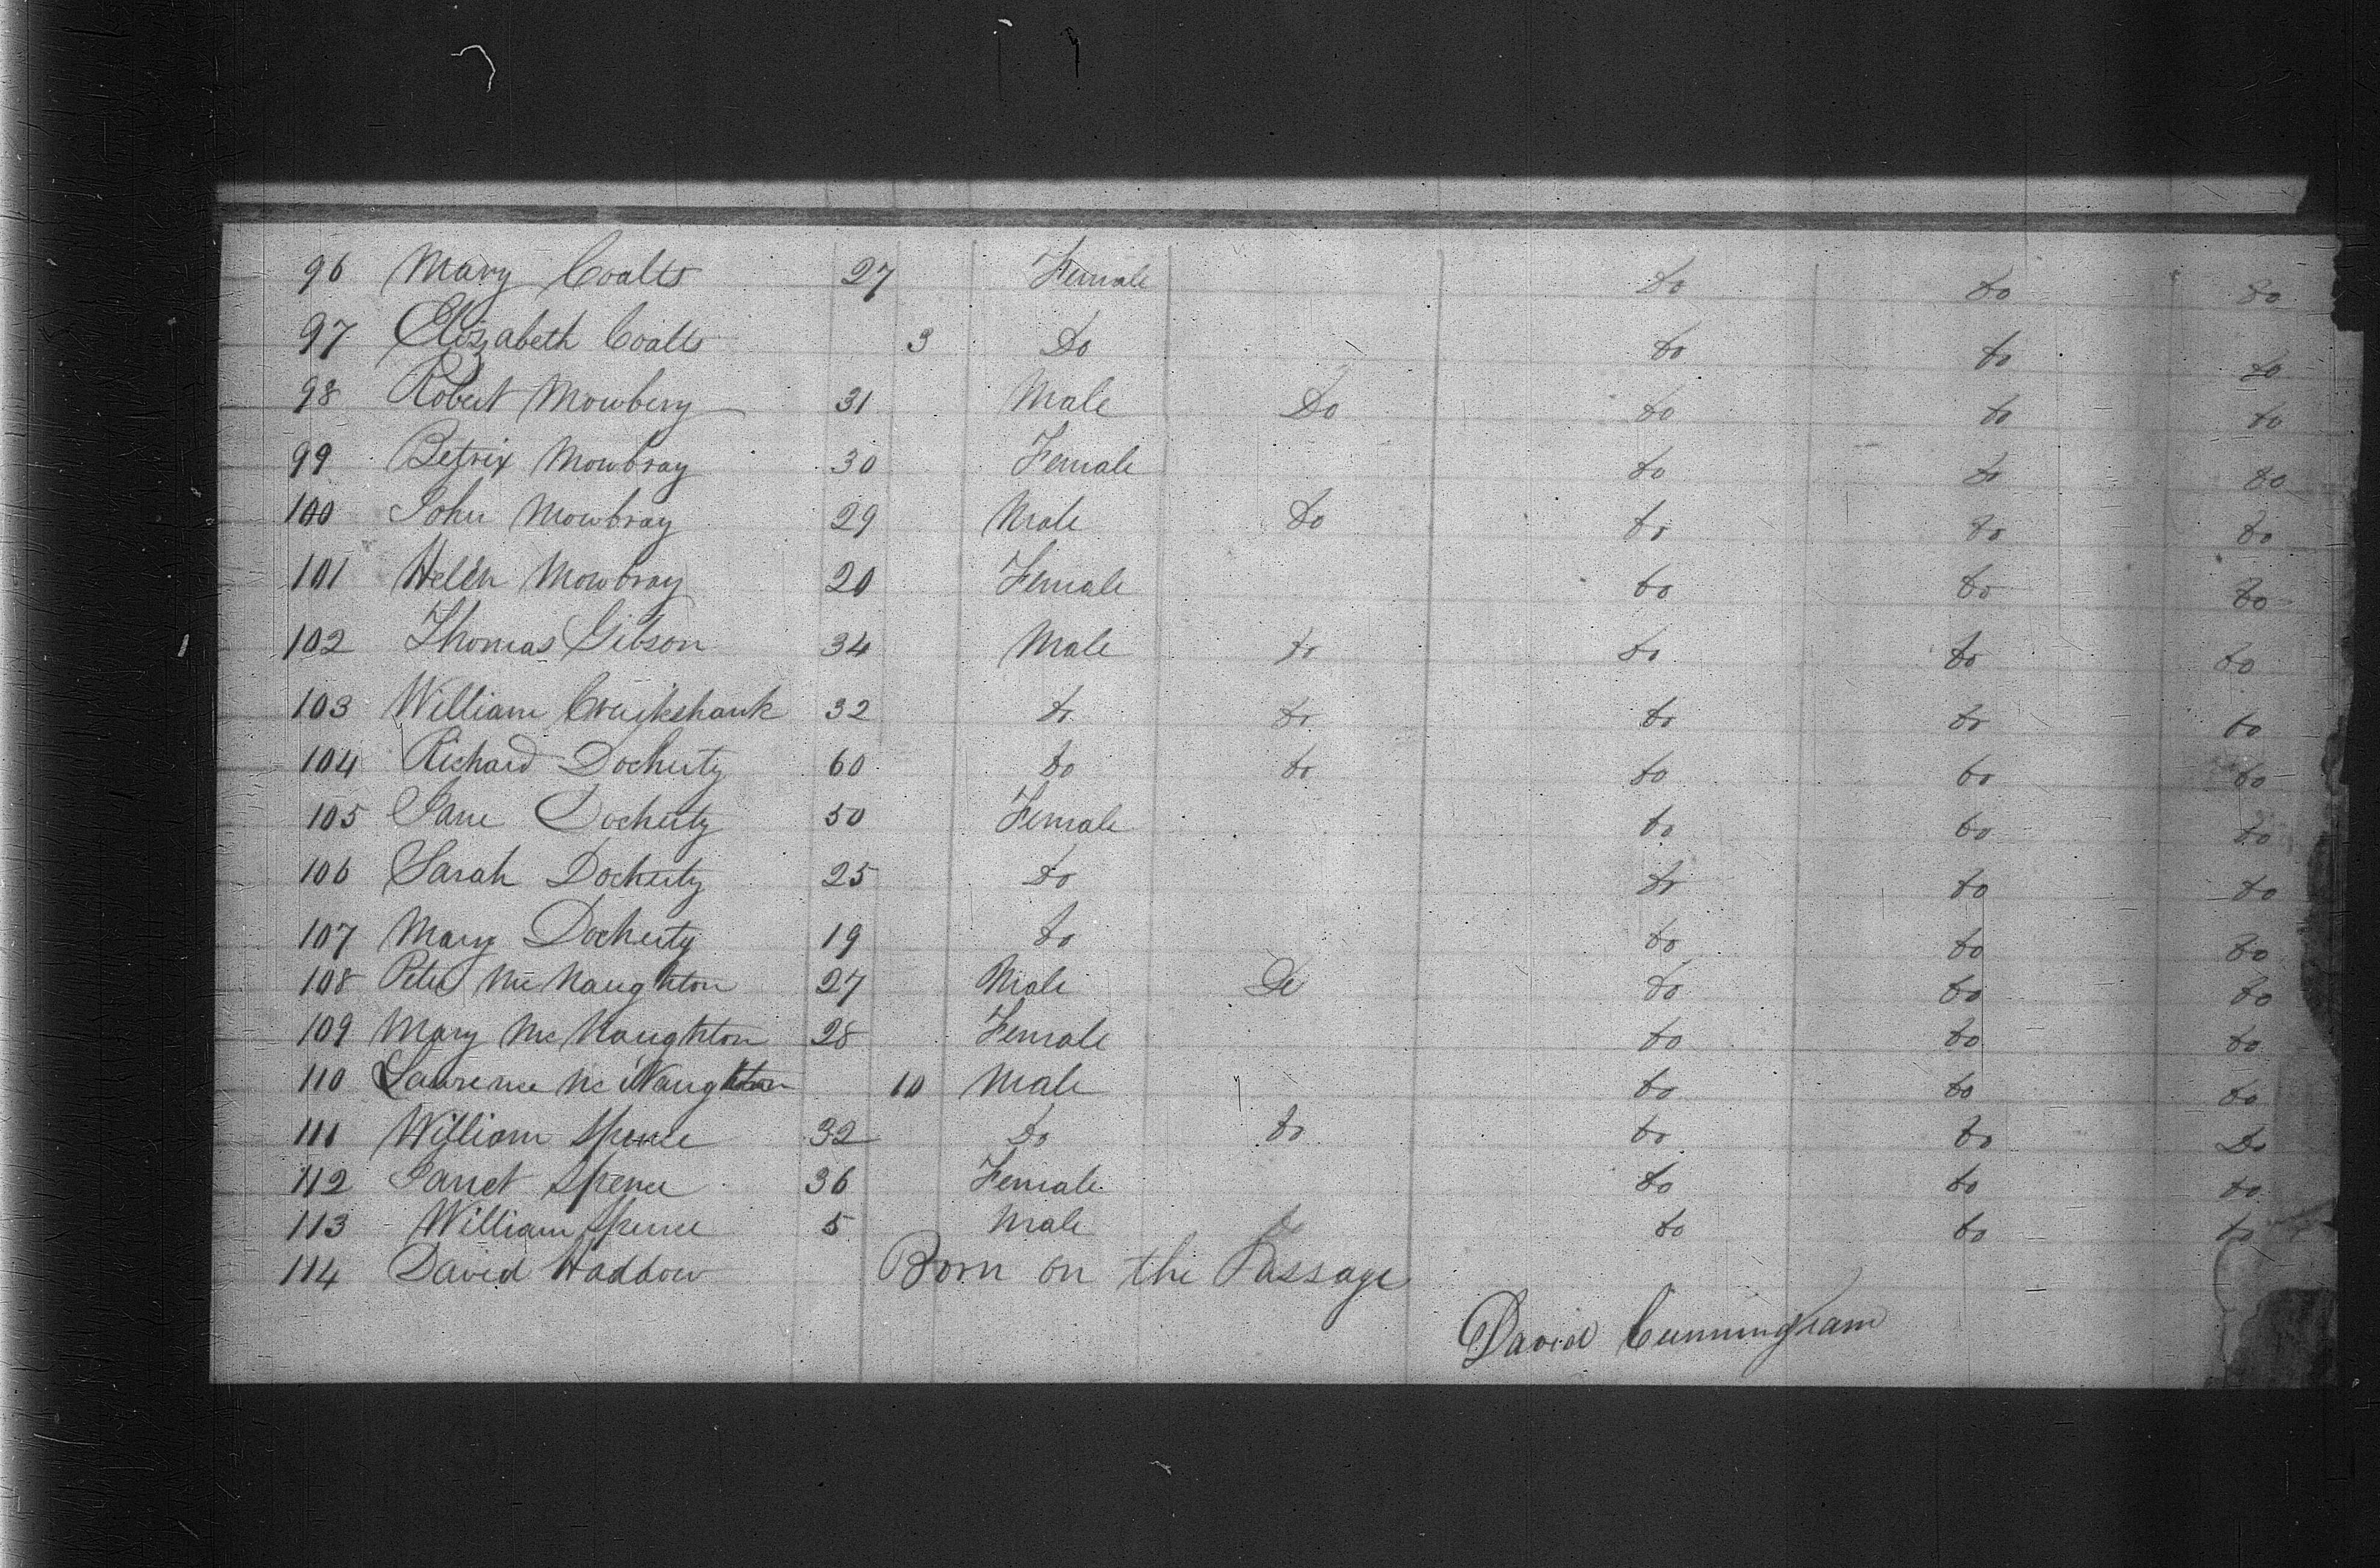 96 Mary Coalts 27 Female Do Do Do
97 Elizabeth Coalts 3 Do Do Do Do
98 Robert Mowbery 31 Male Do Do Do Do
99 Betrix Mowbray 30 Female Do Do Do
100 John Mowbray 29 Male Do Do Do Do
101 Helen Mowbray 20 Female Do Do Do
102 Thomas Gibson 34 Male Do Do Do Do
103 William Cruikshank 32 Do Do Do Do Do
104 Richard Docherty 60 Do Do Do Do Do
105 Jane Docherty 50 Female Do Do Do
106 Sarah Docherty 25 Do Do Do Do
107 Mary Docherty 19 Do Do Do Do
108 Peter McNaughton 27 Male Do Do Do Do
109 Mary McNaughton 28 Female Do Do Do
110 Lawrence McNaughton 10 Male Do Do Do
111 William Spence 32 Do Do Do Do Do
112 Janet Spence 36 Female Do Do Do
113 William Spence 5 Male Do Do Do
114 David Haddow Born on the Passage
David Cunningham